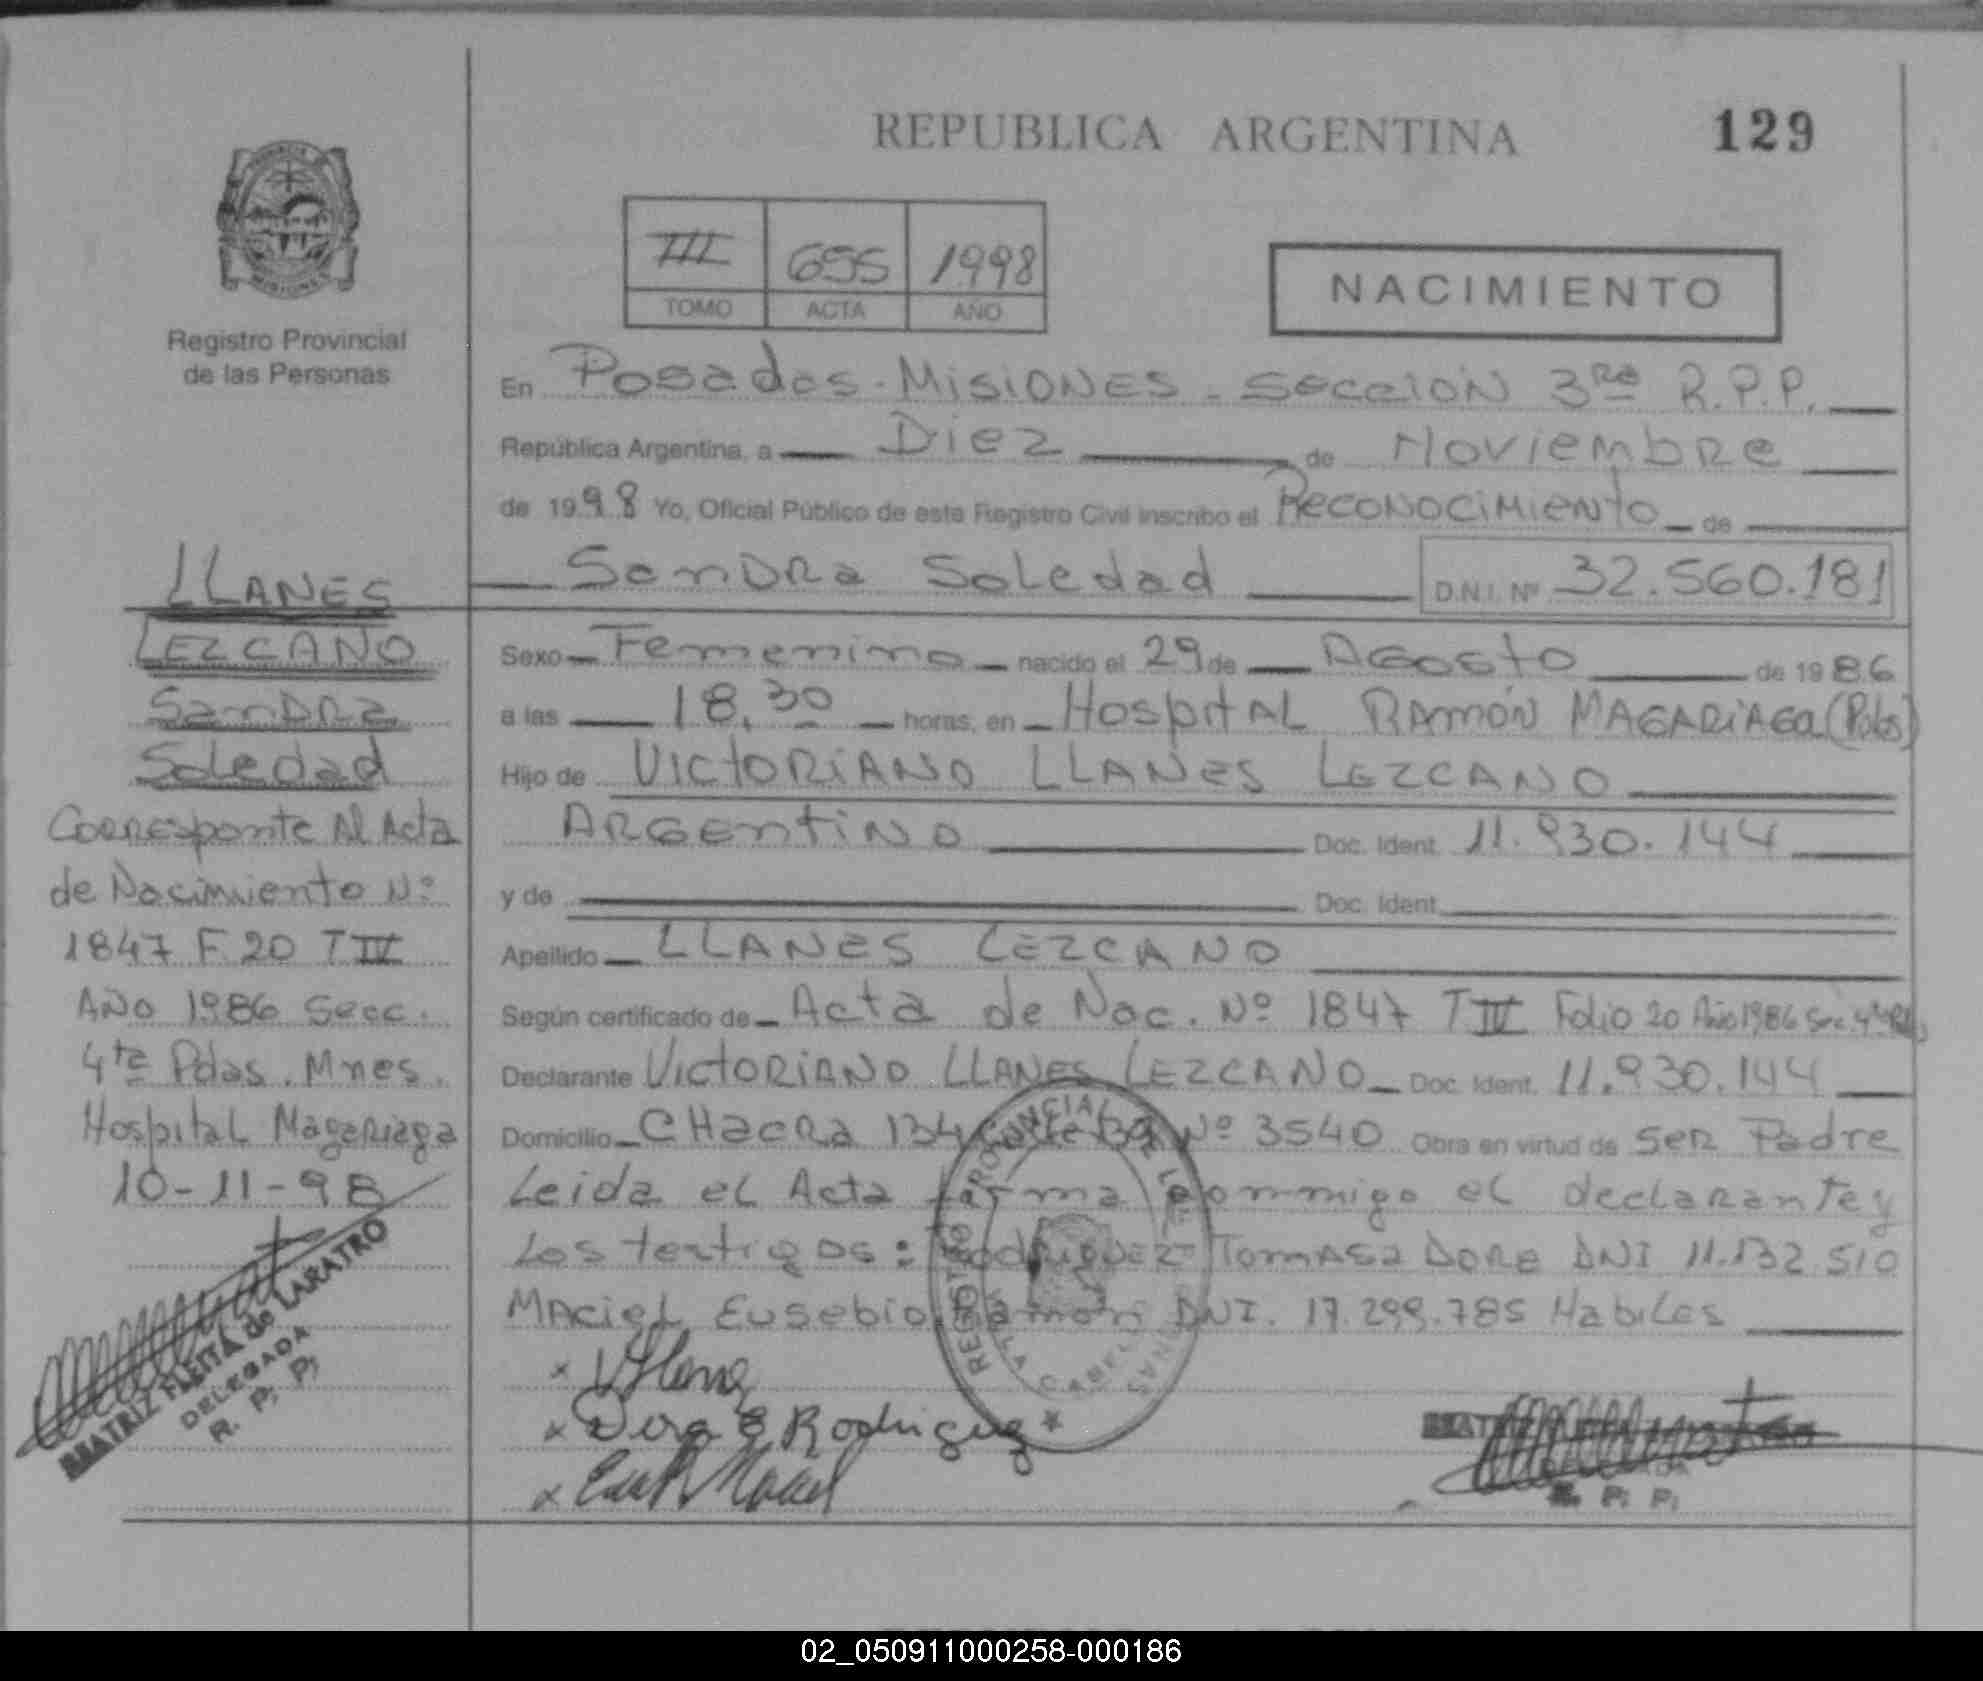 REPUBLICA ARGENTINA
129
PROVINCIA DE
MISIONES
Registro Provincial
de las Personas
III 655 1998
TOMO ACTA AÑO
NACIMIENTO
En Posadas-Misiones-Sección 3ra R.P.P.
República Argentina, a Diez de Noviembre
de 1998 Yo, Oficial Público de este Registro Civil inscribo el Reconocimiento de
Sandra Soledad D.N.I. Nº 32.560.181
Sexo Femenino nacido el 29 de Agosto de 1986
a las 18,30 horas, en Hospital Ramón Magariaga (Pdas)
Hijo de Victoriano Llanes Lezcano
Argentino Doc. Ident. 11.930.144
y de Doc. Ident.
Apellido Llanes Lezcano
Según certificado de Acta de Nac. Nº 1847 T IV Folio 20 Año 1986 Sec. 4ta
Declarante Victoriano Llanes Lezcano Doc. Ident. 11.930.144
Domicilio Chacra 134 Nº 3540 Obra en virtud de Ser Padre
Leida el Acta firma conmigo el declarante y
Los testigos: Rodriguez Tomasa Dora DNI 11.132.510
Maciel Eusebio Ramon DNI. 17.299.785 Habiles
x
x Dora E Rodriguez
x
LLANES
LEZCANO
Sandra
Soledad
Corresponte Al Acta
de Nacimiento Nº
1847 F. 20 T IV
Año 1986 Secc.
4ta Pdas. Mnes.
Hospital Magariaga
10-11-98
BEATRIZ FLEITA de LARATRO
DELEGADA
R. P. P.
REGISTRO PROVINCIAL DE LA
R. P. P.
02_050911000258-000186